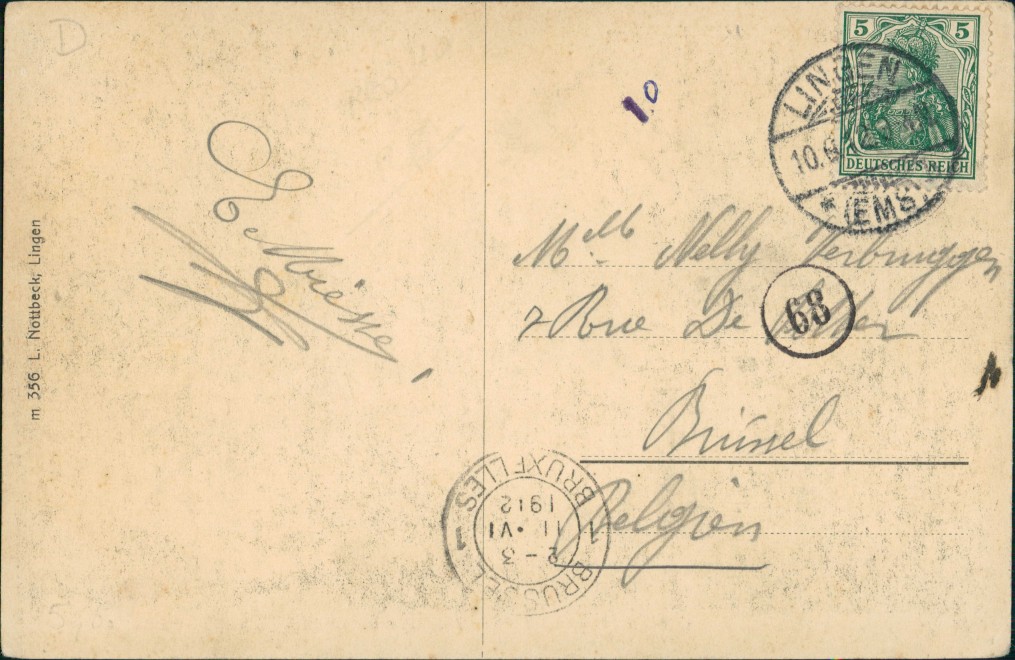 D
m 356 L. Nottbeck, Lingen
10
5 5
DEUTSCHES REICH
LINGEN
10.6.
* (EMS)
Mlle Nelly Verbruggen
7 Rue De
68
Brüssel
Belgien
BRUXELLES
1912
11 · VI
2 - 3
BRUSSEL
1 1